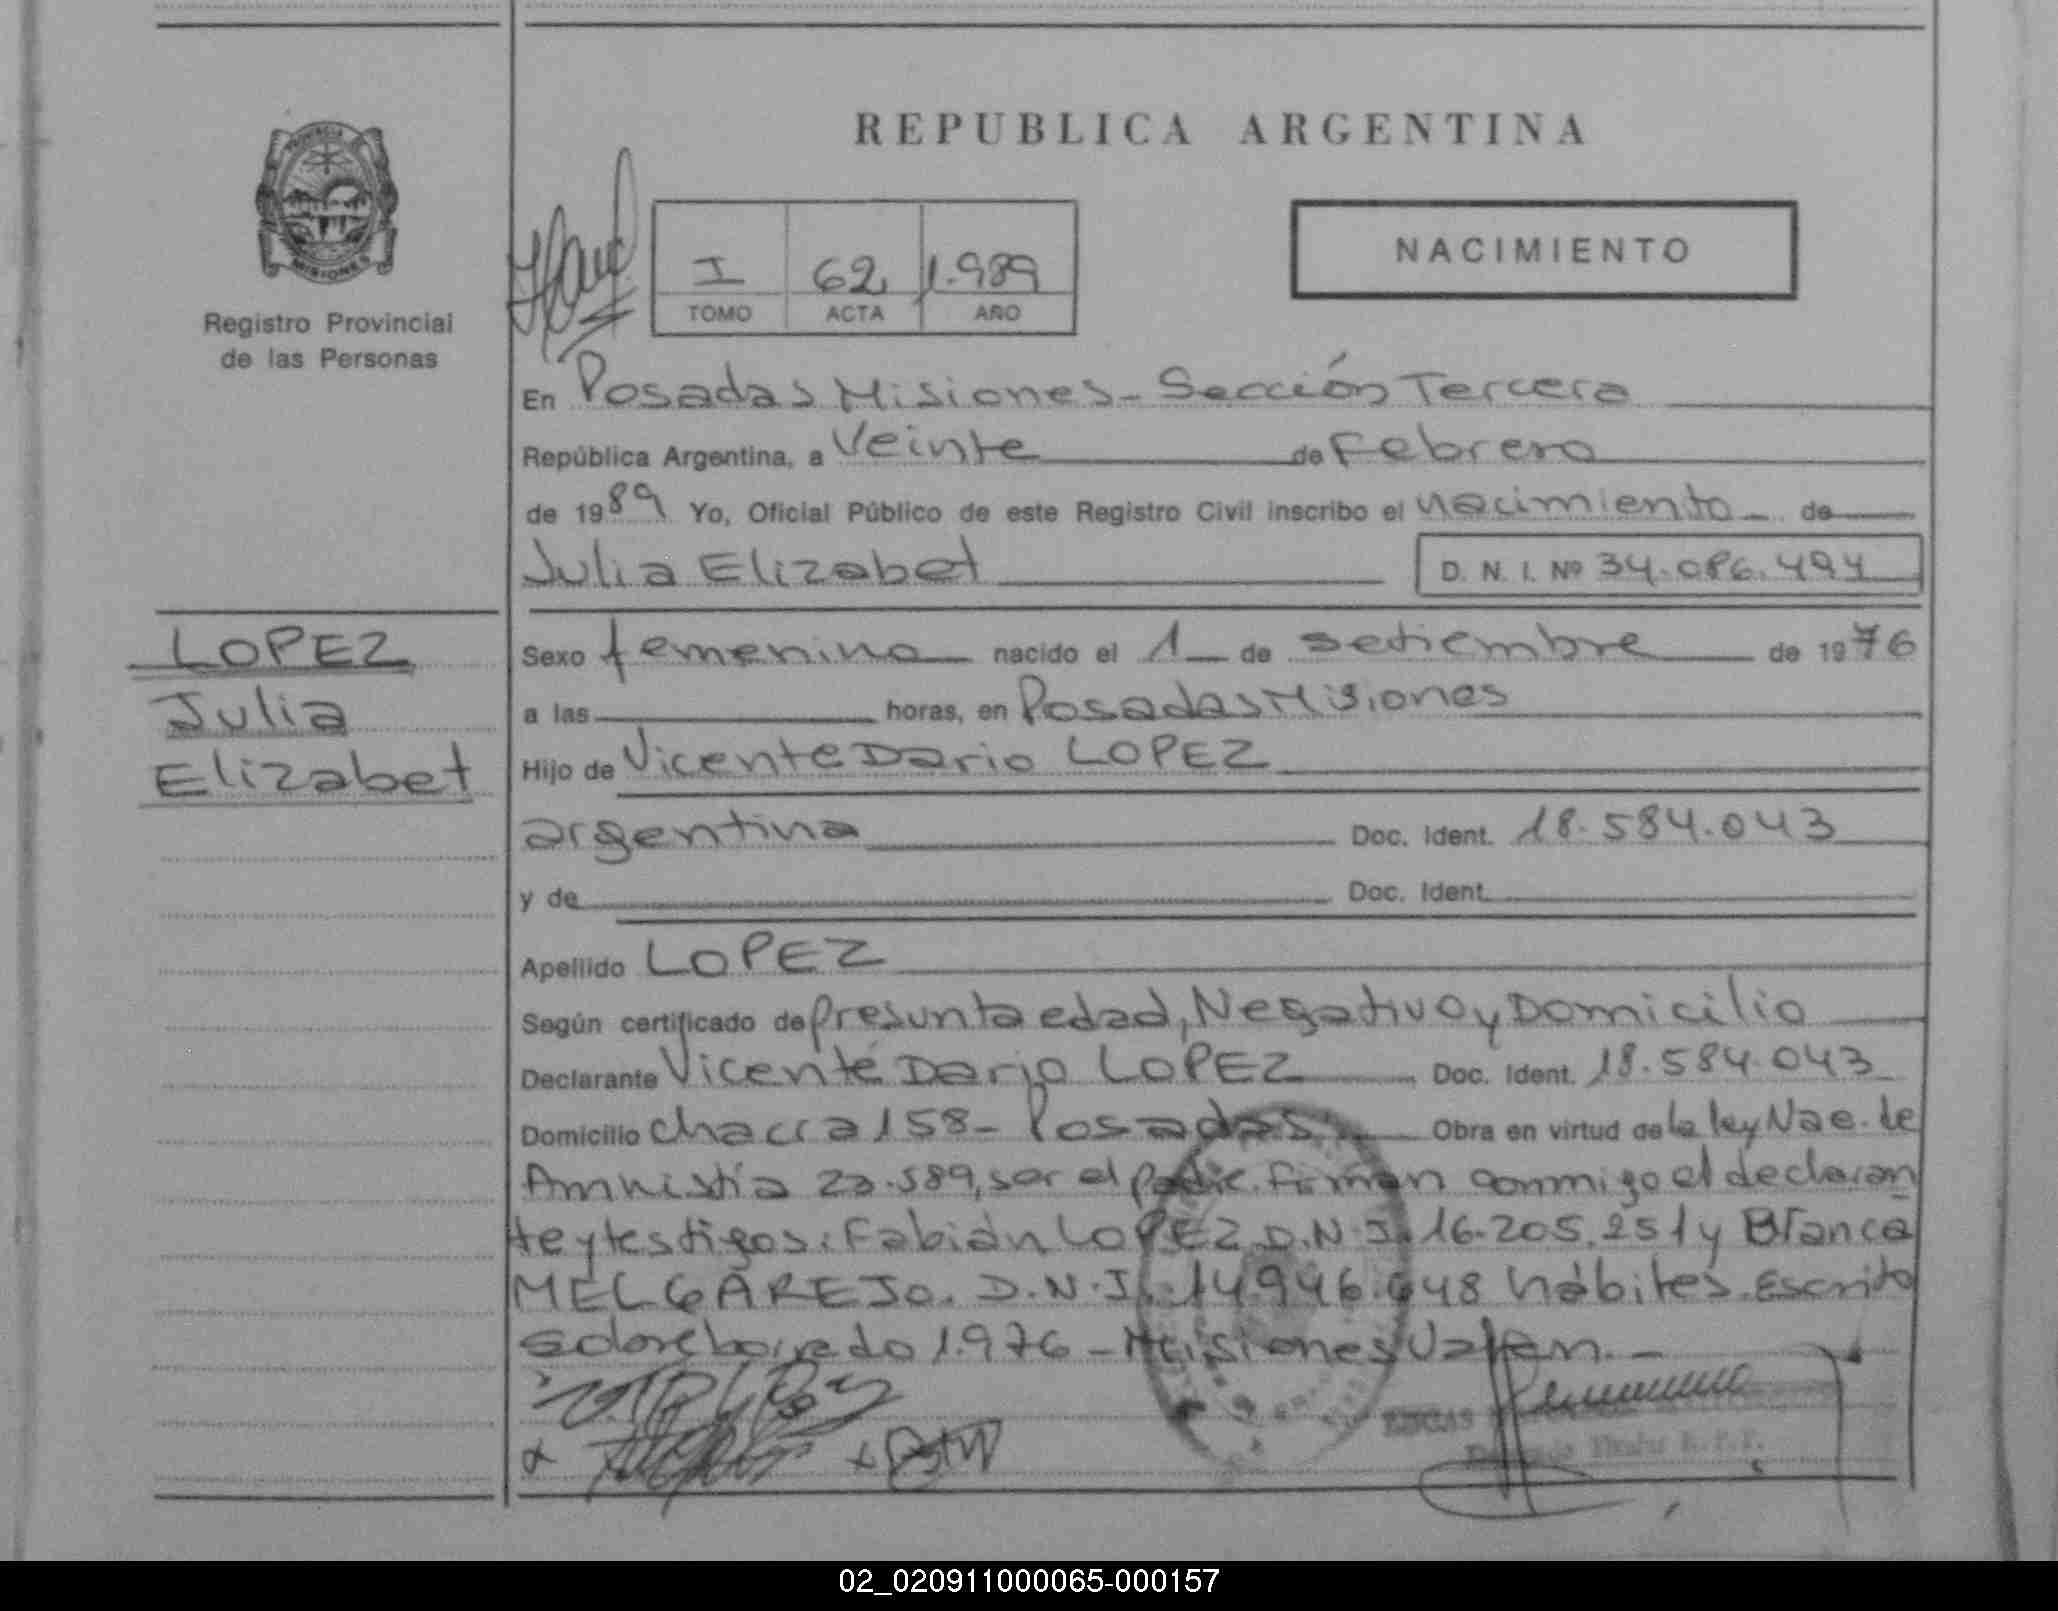 REPUBLICA ARGENTINA
PROVINCIA
MISIONES
Registro Provincial
de las Personas
I 62 1.989
TOMO ACTA AÑO
NACIMIENTO
En Posadas Misiones - Sección Tercera
República Argentina, a Veinte de Febrero
de 1989 Yo, Oficial Público de este Registro Civil inscribo el nacimiento de
Julia Elizabet D. N. I. Nº 34.086.494
LOPEZ
Julia
Elizabet
Sexo femenino nacido el 1 de setiembre de 1976
a las horas, en Posadas Misiones
Hijo de Vicente Dario LOPEZ
argentina Doc. Ident. 18.584.043
y de Doc. Ident.
Apellido LOPEZ
Según certificado de Presunta edad, Negativo y Domicilio
Declarante Vicente Dario LOPEZ Doc. Ident. 18.584.043
Domicilio chacra 158 - Posadas Obra en virtud de la ley Nac. de
Amnistía 22.589, ser el padre. Firman conmigo el declaran
te y testigos: Fabián LOPEZ D.N.I. 16.205.251 y Blanca
MELGAREJO. D.N.I. 14.946.648 hábiles. Escrito
sobreborrado 1.976 - Misiones Valen. -
Titular R.P.P.
02_020911000065-000157